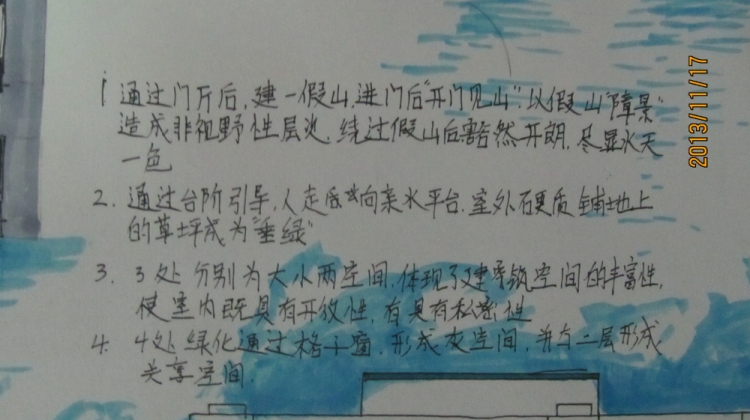 1 通过门厅后,建一假山,进门后"开门见山".以假山"障景"
造成非视野性层次.绕过假山后豁然开朗,尽显水天
一色
2. 通过台阶引导,人走向亲水平台.室外硬质铺地上
的草坪成为"垂绿"
3. 3处分别为大小两空间.体现了建筑空间的丰富性,
使室内既具有开放性,有具有私密性
4. 4处绿化通过格子窗,形成灰空间,并与二层形成
共享空间.
2013/11/17